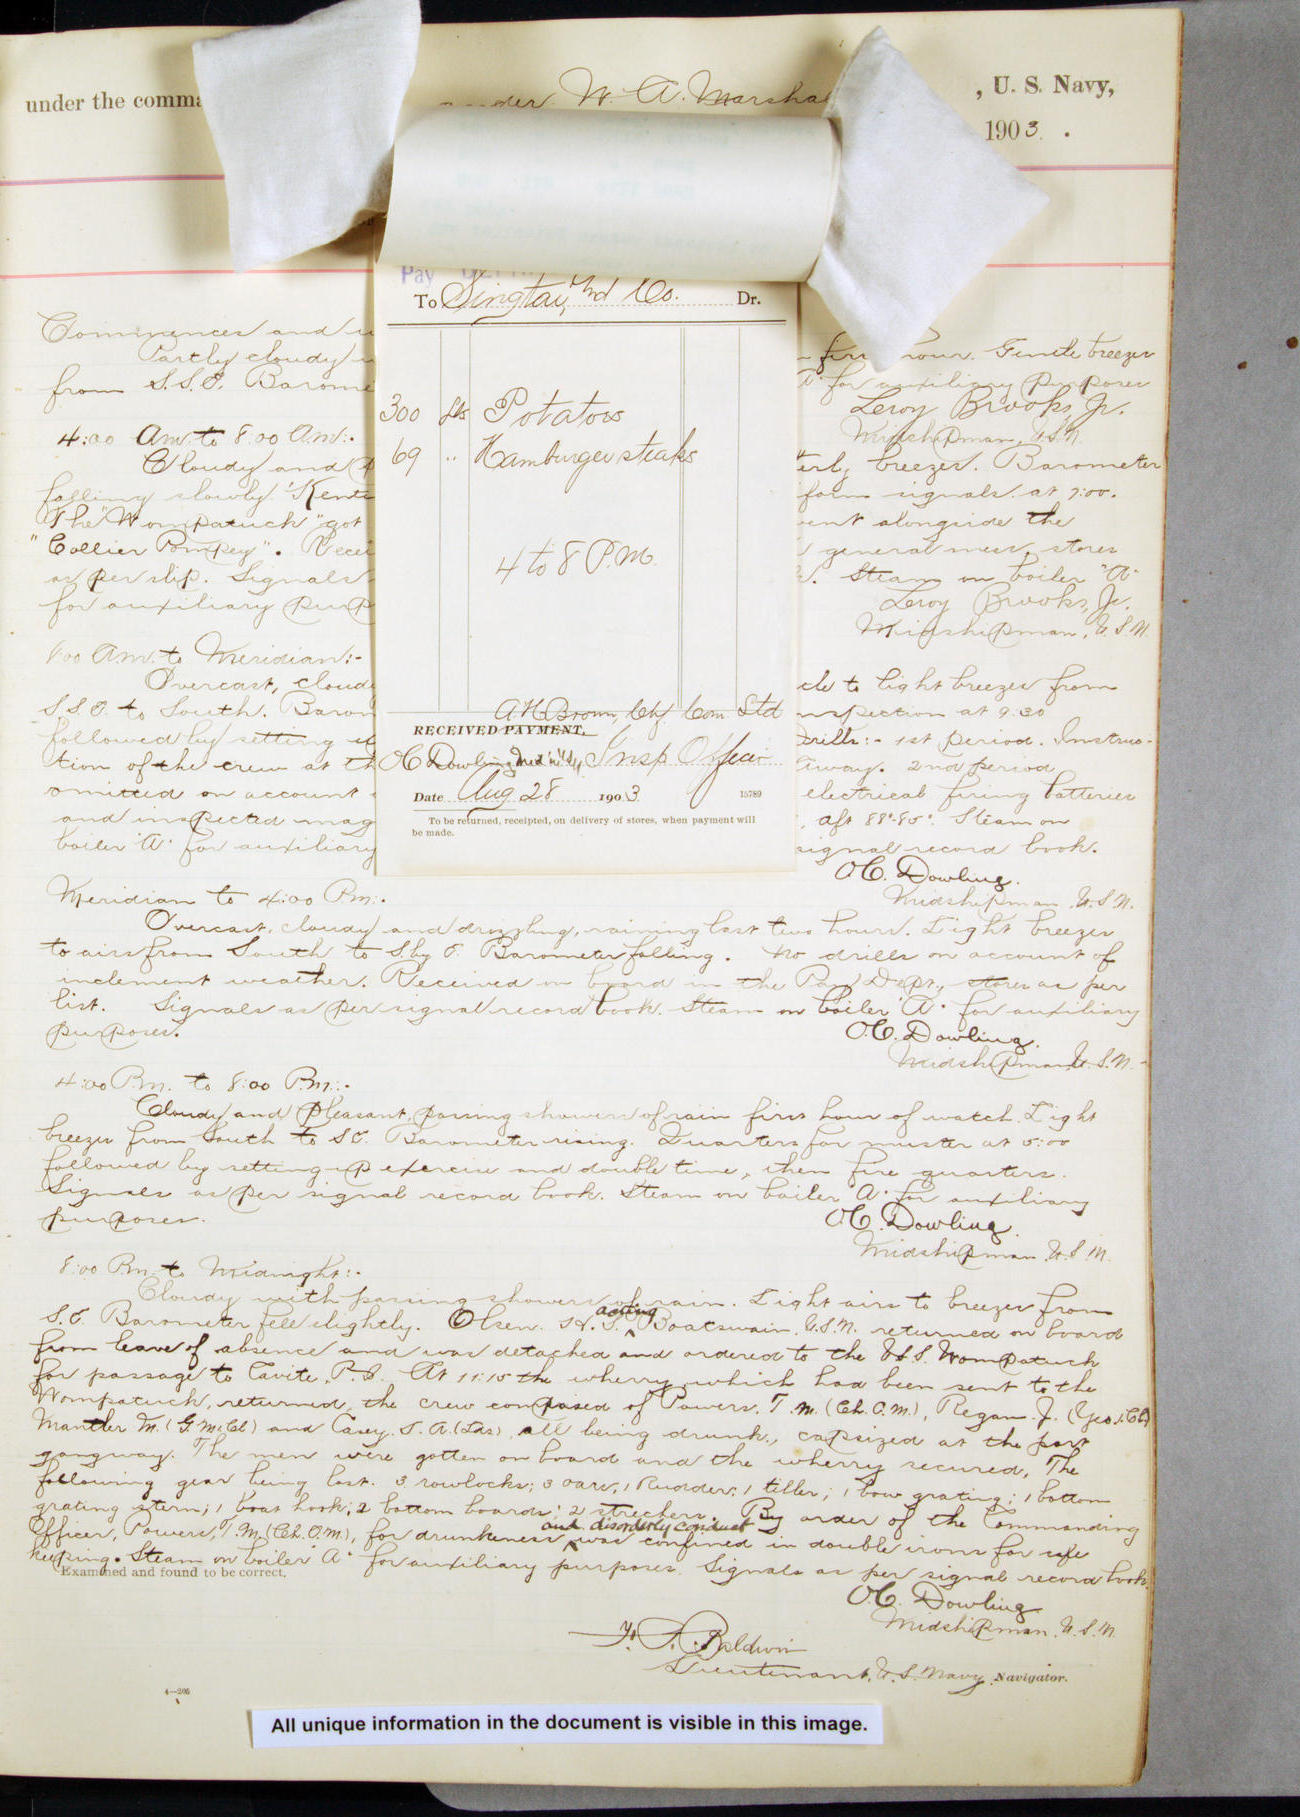 under the comma
nder W. A. Marshal
, U. S. Navy,
1903.
Pay
To Singtai, and Co. Dr.
300 lbs Potatoes
69 " Hamburger steaks
4 to 8 P.M.
A. H. Brown, Chf Com. Std
RECEIVED PAYMENT,
O. C. Dowling Insp Officer
Date Aug 28 1903
15789
To be returned, receipted, on delivery of stores, when payment will
be made.
Commences and u
first hour. Gentle breezes
Partly cloudy
from S.S.E. Barome
"A" for auxiliary purposes
Leroy Brooks, Jr.
Midshipman, U.S.N.
4:00 A.m. to 8:00 A.m:-
Cloudy and
terly breezes. Barometer
falling slowly. "Kent
form signals at 7:00.
The "Wompatuck" got
went alongside the
"Collier Pompey". Recei
general mess, stores
as per slip. Signals
Steam on boiler "A"
for auxiliary purp
Leroy Brooks, Jr.
Midshipman, U.S.N.
8:00 A.m. to Meridian:-
Overcast, cloud
cle to light breezes from
S.S.E. to South. Baron
inspection at 9:30
followed by setting u
Drills:- 1st period. Instruc-
tion of the crew at th
2nd period
omitted on account
electrical firing batteries
and inspected mag
, aft 88°-85°. Steam on
boiler "A" for auxiliary
signal record book.
O.C. Dowling.
Midshipman, U.S.N.
Meridian to 4:00 P.m:-
Overcast, cloudy and drizzling, raining last two hours. Light breezes
to airs from South to S. by E. Barometer falling. No drills on account of
inclement weather. Received on board in the Pay Dept., stores as per
list. Signals as per signal record book. Steam on boiler "A" for auxiliary
purposes.
O.C. Dowling.
Midshipman U.S.N.
4:00 P.m. to 8:00 P.m:-
Cloudy and pleasant, passing showers of rain first hour of watch. Light
breezes from South to S.E. Barometer rising. Quarters for muster at 5:00
followed by setting up exercise and double time, then fire quarters.
Signals as per signal record book. Steam on boiler "A" for auxiliary
purposes.
O.C. Dowling.
Midshipman U.S.N.
8:00 P.m. to Midnight:-
Cloudy with passing showers of rain. Light airs to breezes from
S.E. Barometer fell slightly. Olsen, H. S. acting Boatswain, U.S.N. returned on board
from leave of absence and was detached and ordered to the U.S.S. Wompatuck
for passage to Cavite, P.I. At 11:15 the wherry which had been sent to the
Wompatuck, returned, the crew composed of Powers, T. M. (Ch. O.M.), Regan. J. (Yeo. 1.Cl)
Mantler M. (G.M. 1Cl) and Casey. S. A. (Lds), all being drunk, capsized at the port
gangway. The men were gotten on board and the wherry secured, The
following gear being lost. 3 rowlocks; 3 oars, 1 Rudder; 1 tiller; 1 bow grating; 1 bottom
grating stern; 1 boat hook; 2 bottom boards; 2 strechers. By order of the Commanding
Officer, Powers, T. M. (Ch. O.M.), for drunkeness and disorderly conduct was confined in double irons for safe
keeping. Steam on boiler "A" for auxiliary purposes. Signals as per signal record book.
Examined and found to be correct.
O.C. Dowling
Midshipman, U.S.N.
Baldwin
Lieutenant, U.S. Navy, Navigator.
4—206
All unique information in the document is visible in this image.